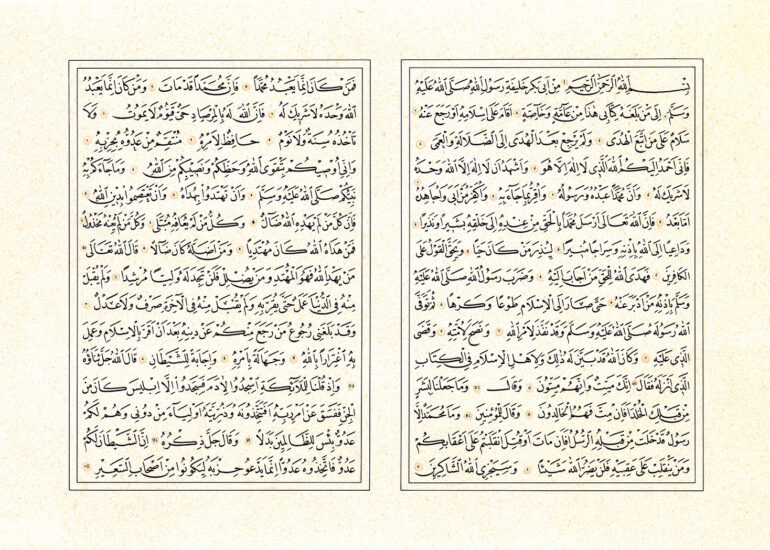 بسم الله الرحمن الرحيم من أبي بكر خليفة رسول الله صلى الله عليه
وسلم إلى من بلغه كتابي هذا من عامة وخاصة أقام على إسلامه أو رجع عنه
سلام على من اتبع الهدى ولم يرجع بعد الهدى إلى الضلالة والعمى
فإني أحمد إليكم الله الذي لا إله إلا هو وأشهد أن لا إله إلا الله وحده
لا شريك له وأن محمدا عبده ورسوله وأقر بما جاء به وأكفر من أبى وأجاهده
أما بعد فإن الله تعالى أرسل محمدا بالحق من عنده إلى خلقه بشيرا ونذيرا
وداعيا إلى الله بإذنه وسراجا منيرا لينذر من كان حيا ويحق القول على
الكافرين فهدى الله للحق من أجاب إليه وضرب رسول الله صلى الله عليه
وسلم بإذنه من أدبر عنه حتى صار إلى الإسلام طوعا وكرها ثم توفى
الله رسوله صلى الله عليه وسلم وقد نفذ لأمر الله ونصح لأمته وقضى
الذي عليه وكان الله قد بين له ذلك ولأهل الإسلام في الكتاب
الذي أنزله فقال إنك ميت وإنهم ميتون وقال وما جعلنا لبشر
من قبلك الخلد أفإن مت فهم الخالدون وقال للمؤمنين وما محمد إلا
رسول قد خلت من قبله الرسل أفإن مات أو قتل انقلبتم على أعقابكم
ومن ينقلب على عقبيه فلن يضر الله شيئا وسيجزي الله الشاكرين
فمن كان إنما يعبد محمدا فإن محمدا قد مات ومن كان إنما يعبد
الله وحده لا شريك له فإن الله له بالمرصاد حي قيوم لا يموت ولا
تأخذه سنة ولا نوم حافظ لأمره منتقم من عدوه بحزبه
وإني أوصيكم بتقوى الله وحظكم ونصيبكم من الله وما جاءكم به
نبيكم صلى الله عليه وسلم وأن تهتدوا بهداه وأن تعتصموا بدين الله
فإن كل من لم يهده الله ضال وكل من لم يعافه مبتلى وكل من لم يعنه مخذول
فمن هداه الله كان مهتديا ومن أضله كان ضالا قال الله تعالى
من يهد الله فهو المهتد ومن يضلل فلن تجد له وليا مرشدا ولم يقبل
منه في الدنيا عمل حتى يقر به ولم يقبل منه في الآخرة صرف ولا عدل
وقد بلغني رجوع من رجع منكم عن دينه بعد أن أقر بالإسلام وعمل
به اغترارا بالله وجهالة بأمره وإجابة للشيطان قال الله جل ثناؤه
وإذ قلنا للملائكة اسجدوا لآدم فسجدوا إلا إبليس كان من
الجن ففسق عن أمر ربه أفتتخذونه وذريته أولياء من دوني وهم لكم
عدو بئس للظالمين بدلا وقال جل ذكره إن الشيطان لكم
عدو فاتخذوه عدوا إنما يدعو حزبه ليكونوا من أصحاب السعير